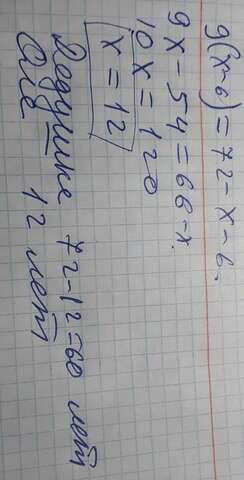 9(x-6) = 72 - x - 6.
9x - 54 = 66 - x.
10x = 120
x = 12
Дедушке 72-12=60 лет
Оле 12 лет